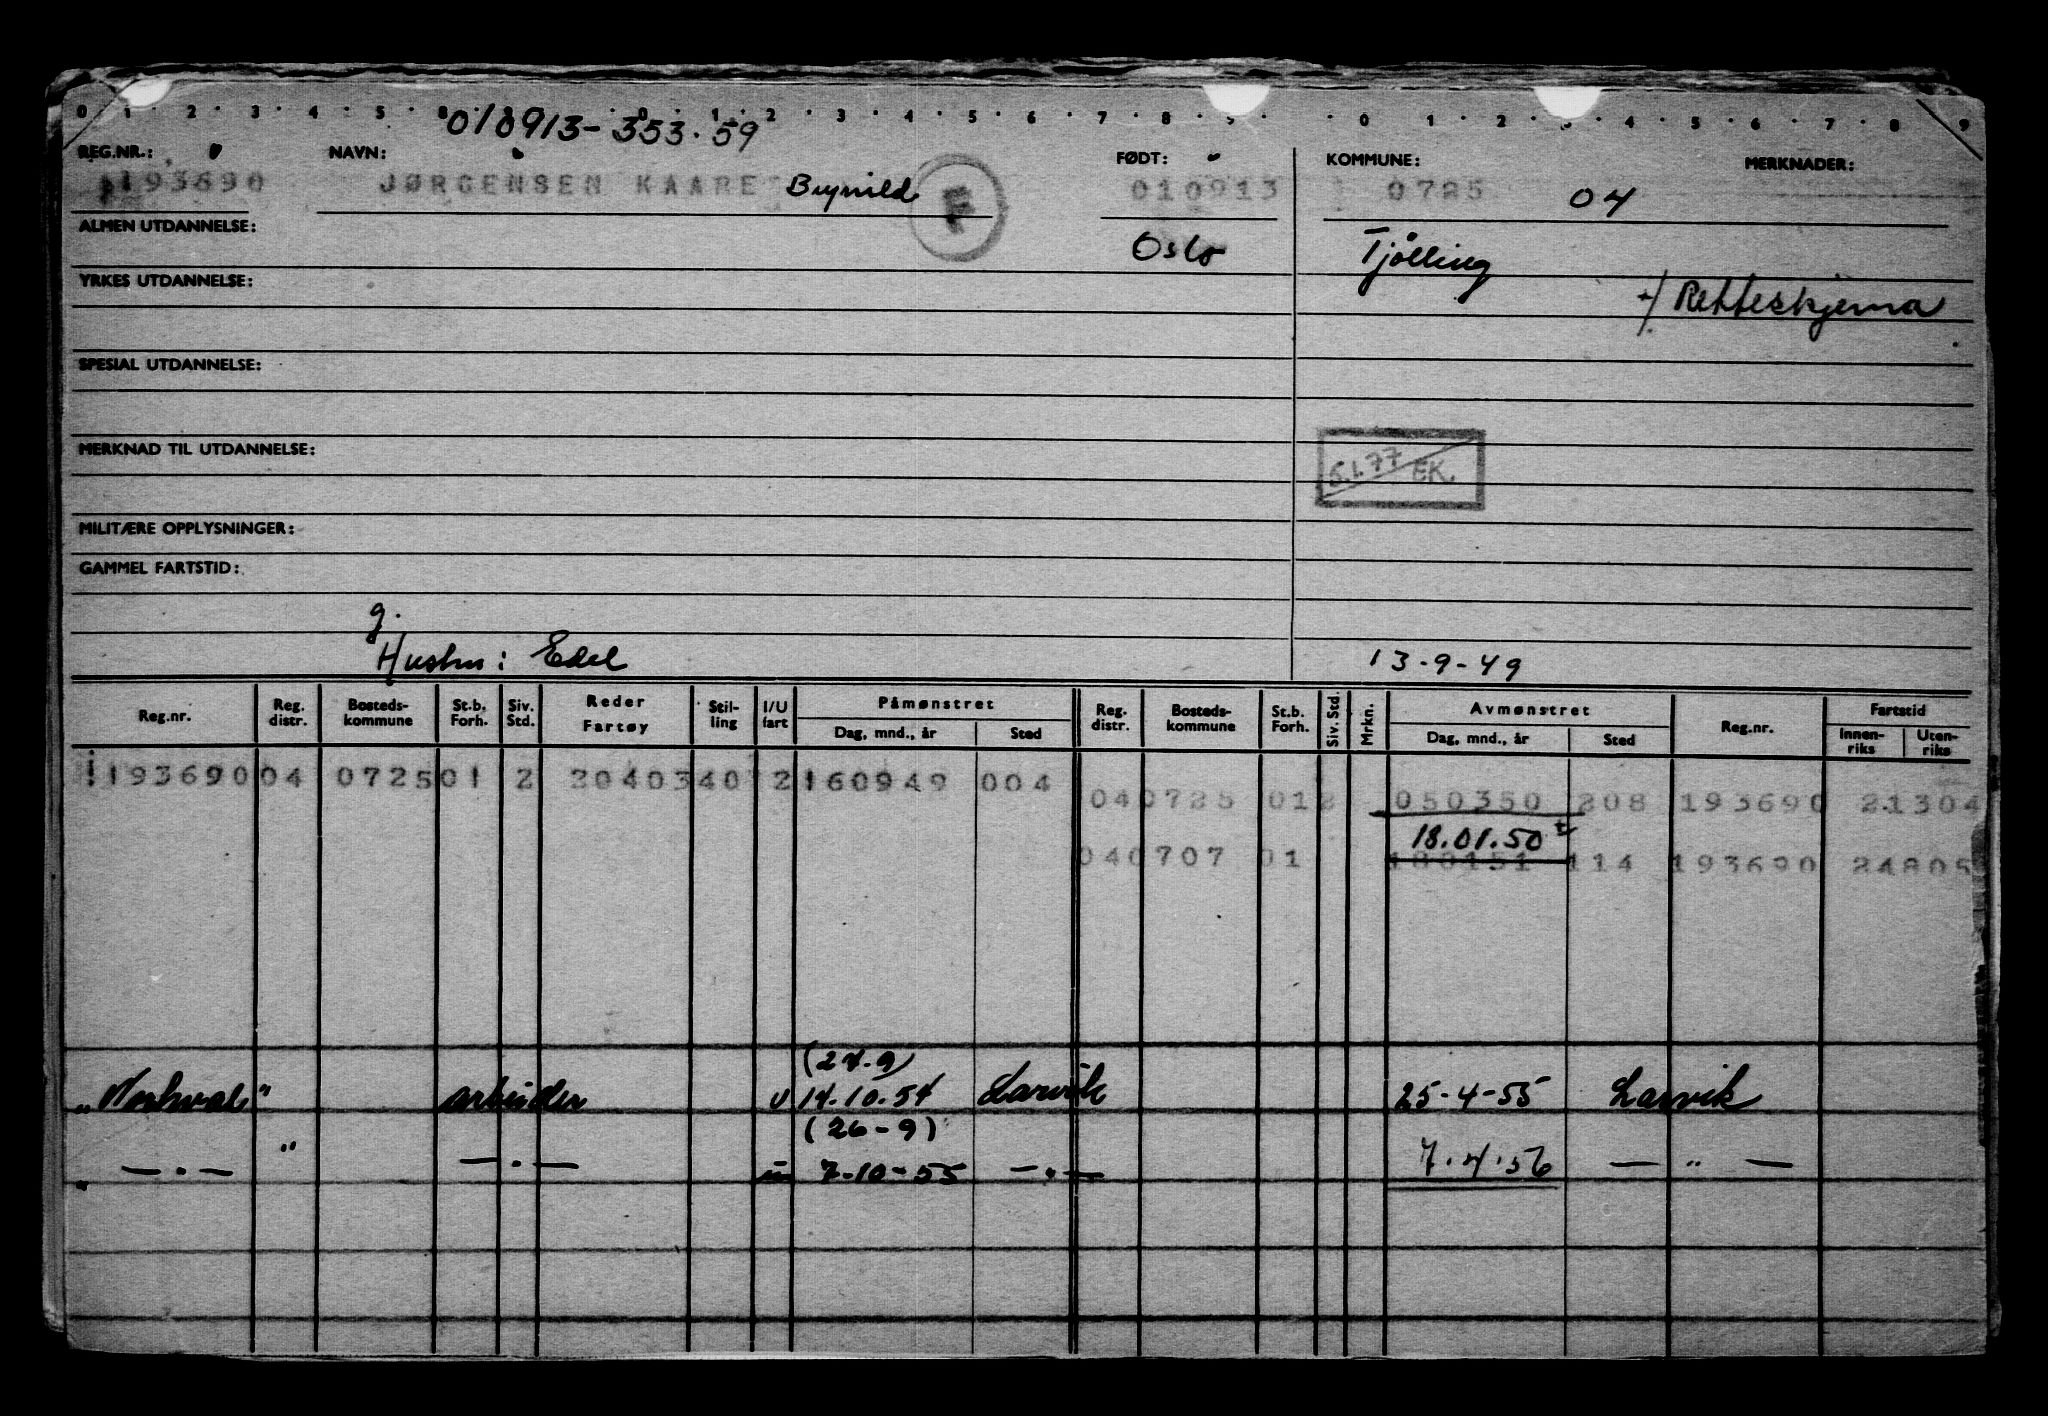 0 1 2 3 4 5 8 0 1 2 3 4 5 6 7 8 9 0 1 2 3 4 5 6 7 8 9
010913-353.59
REG.NR.: NAVN: FØDT: KOMMUNE: MERKNADER:
193690 JØRGENSEN KAARE Brynild F 010913 0725 04
ALMEN UTDANNELSE: Oslo Tjølling
YRKES UTDANNELSE: Retteskjema
SPESIAL UTDANNELSE:
MERKNAD TIL UTDANNELSE:
5.1.77 EK.
MILITÆRE OPPLYSNINGER:
GAMMEL FARTSTID:
g.
Hustru: Edel 13-9-49
Reg.nr. Reg. distr. Bosteds-kommune St.b. Forh. Siv. Std. Reder Fartøy Stil-ling I/U fart Påmønstret Dag, mnd., år Sted Reg. distr. Bosteds-kommune St.b. Forh. Siv. Std. Mrkn. Avmønstret Dag, mnd., år Sted Reg.nr. Fartstid Innen-riks Uten-riks
193690 04 0725 01 2 20403 40 2 160949 004
04 0725 01 2 050350 208 193690 21304
18.01.50
04 0707 01 180151 114 193690 24805
(27.9)
"Norhval" arbeider U 14.10.54 Larvik 25-4-55 Larvik
(26-9)
— . — " — . — 7-10-55 — . — 7.4.56 — " —